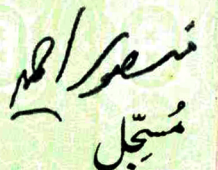 منصور احمد
مُسجِّل